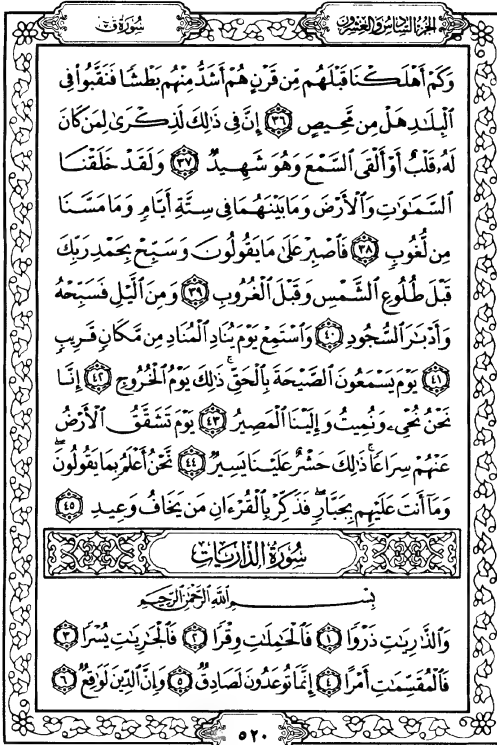 سُورَةُ ق
الجُزءُ السَّادِسُ وَالعِشْرُونَ
وَكَمْ أَهْلَكْنَا قَبْلَهُم مِّن قَرْنٍ هُمْ أَشَدُّ مِنْهُم بَطْشًا فَنَقَّبُوا۟ فِى
ٱلْبِلَٰدِ هَلْ مِن مَّحِيصٍ ٣٦ إِنَّ فِى ذَٰلِكَ لَذِكْرَىٰ لِمَن كَانَ
لَهُۥ قَلْبٌ أَوْ أَلْقَى ٱلسَّمْعَ وَهُوَ شَهِيدٌ ٣٧ وَلَقَدْ خَلَقْنَا
ٱلسَّمَٰوَٰتِ وَٱلْأَرْضَ وَمَا بَيْنَهُمَا فِى سِتَّةِ أَيَّامٍ وَمَا مَسَّنَا
مِن لُّغُوبٍ ٣٨ فَٱصْبِرْ عَلَىٰ مَا يَقُولُونَ وَسَبِّحْ بِحَمْدِ رَبِّكَ
قَبْلَ طُلُوعِ ٱلشَّمْسِ وَقَبْلَ ٱلْغُرُوبِ ٣٩ وَمِنَ ٱلَّيْلِ فَسَبِّحْهُ
وَأَدْبَٰرَ ٱلسُّجُودِ ٤٠ وَٱسْتَمِعْ يَوْمَ يُنَادِ ٱلْمُنَادِ مِن مَّكَانٍ قَرِيبٍ
٤١ يَوْمَ يَسْمَعُونَ ٱلصَّيْحَةَ بِٱلْحَقِّ ۚ ذَٰلِكَ يَوْمُ ٱلْخُرُوجِ ٤٢ إِنَّا
نَحْنُ نُحْىِۦ وَنُمِيتُ وَإِلَيْنَا ٱلْمَصِيرُ ٤٣ يَوْمَ تَشَقَّقُ ٱلْأَرْضُ
عَنْهُمْ سِرَاعًا ۚ ذَٰلِكَ حَشْرٌ عَلَيْنَا يَسِيرٌ ٤٤ نَّحْنُ أَعْلَمُ بِمَا يَقُولُونَ ۖ
وَمَا أَنتَ عَلَيْهِم بِجَبَّارٍ ۖ فَذَكِّرْ بِٱلْقُرْءَانِ مَن يَخَافُ وَعِيدِ ٤٥
سُورَةُ الذَّارِيَاتِ
بِسْمِ ٱللَّهِ ٱلرَّحْمَٰنِ ٱلرَّحِيمِ
وَٱلذَّٰرِيَٰتِ ذَرْوًا ١ فَٱلْحَٰمِلَٰتِ وِقْرًا ٢ فَٱلْجَٰرِيَٰتِ يُسْرًا ٣
فَٱلْمُقَسِّمَٰتِ أَمْرًا ٤ إِنَّمَا تُوعَدُونَ لَصَادِقٌ ٥ وَإِنَّ ٱلدِّينَ لَوَٰقِعٌ ٦
٥٢٠